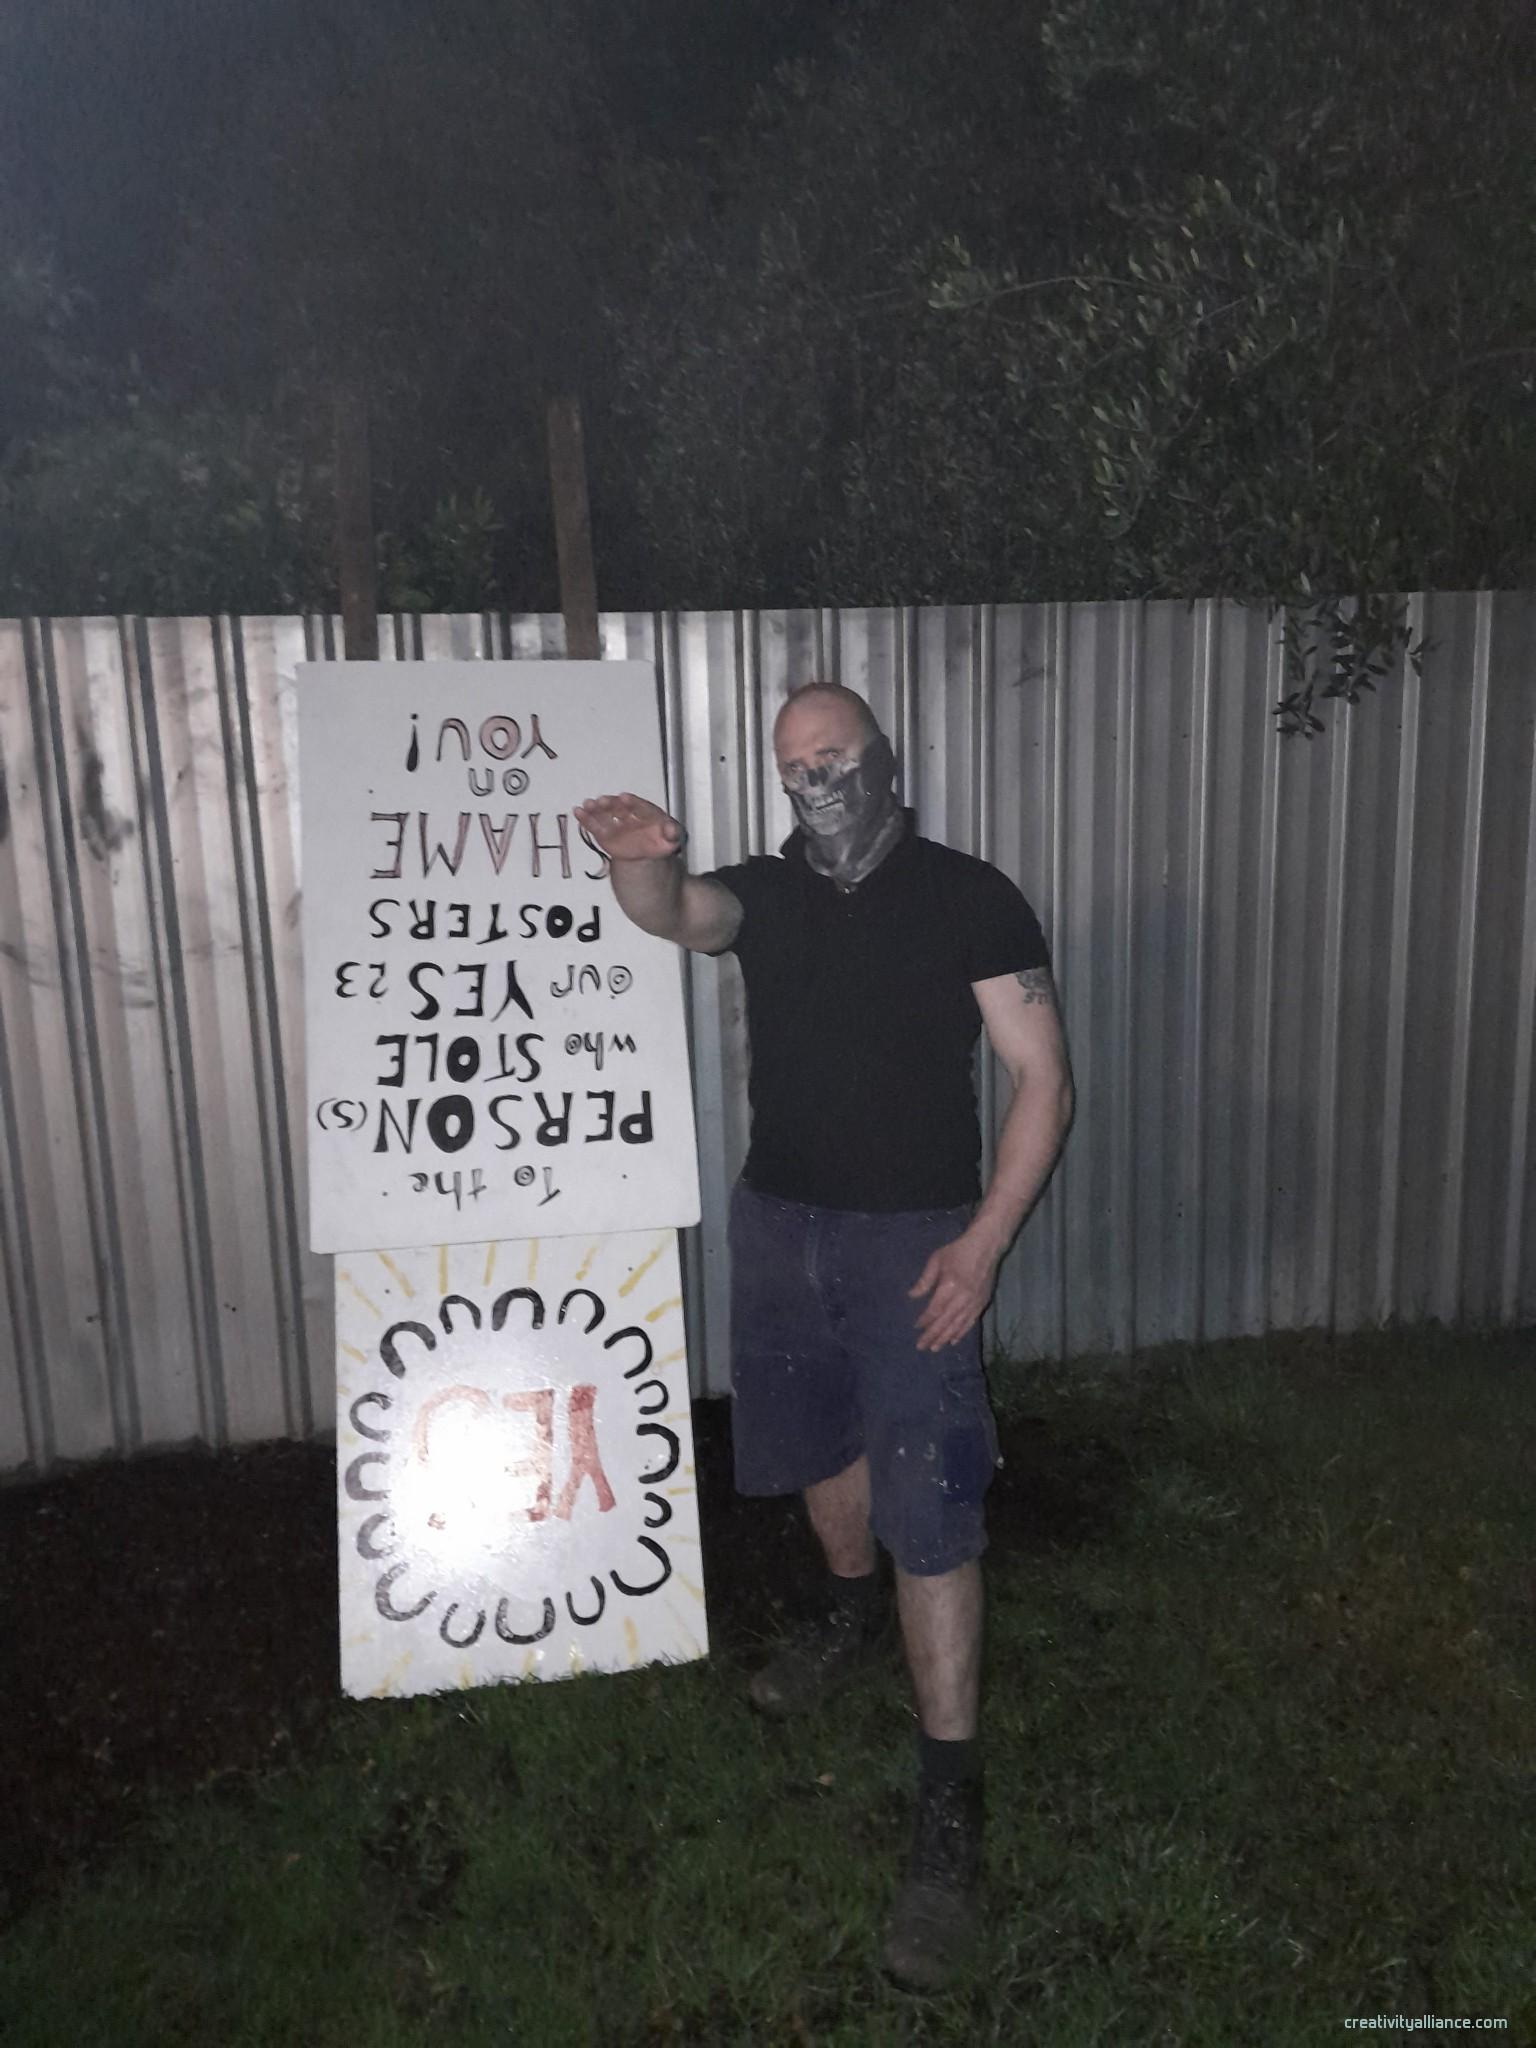 To the
PERSON(S)
who STOLE
our YES 23
POSTERS
SHAME
on
YOU!
YES
creativityalliance.com